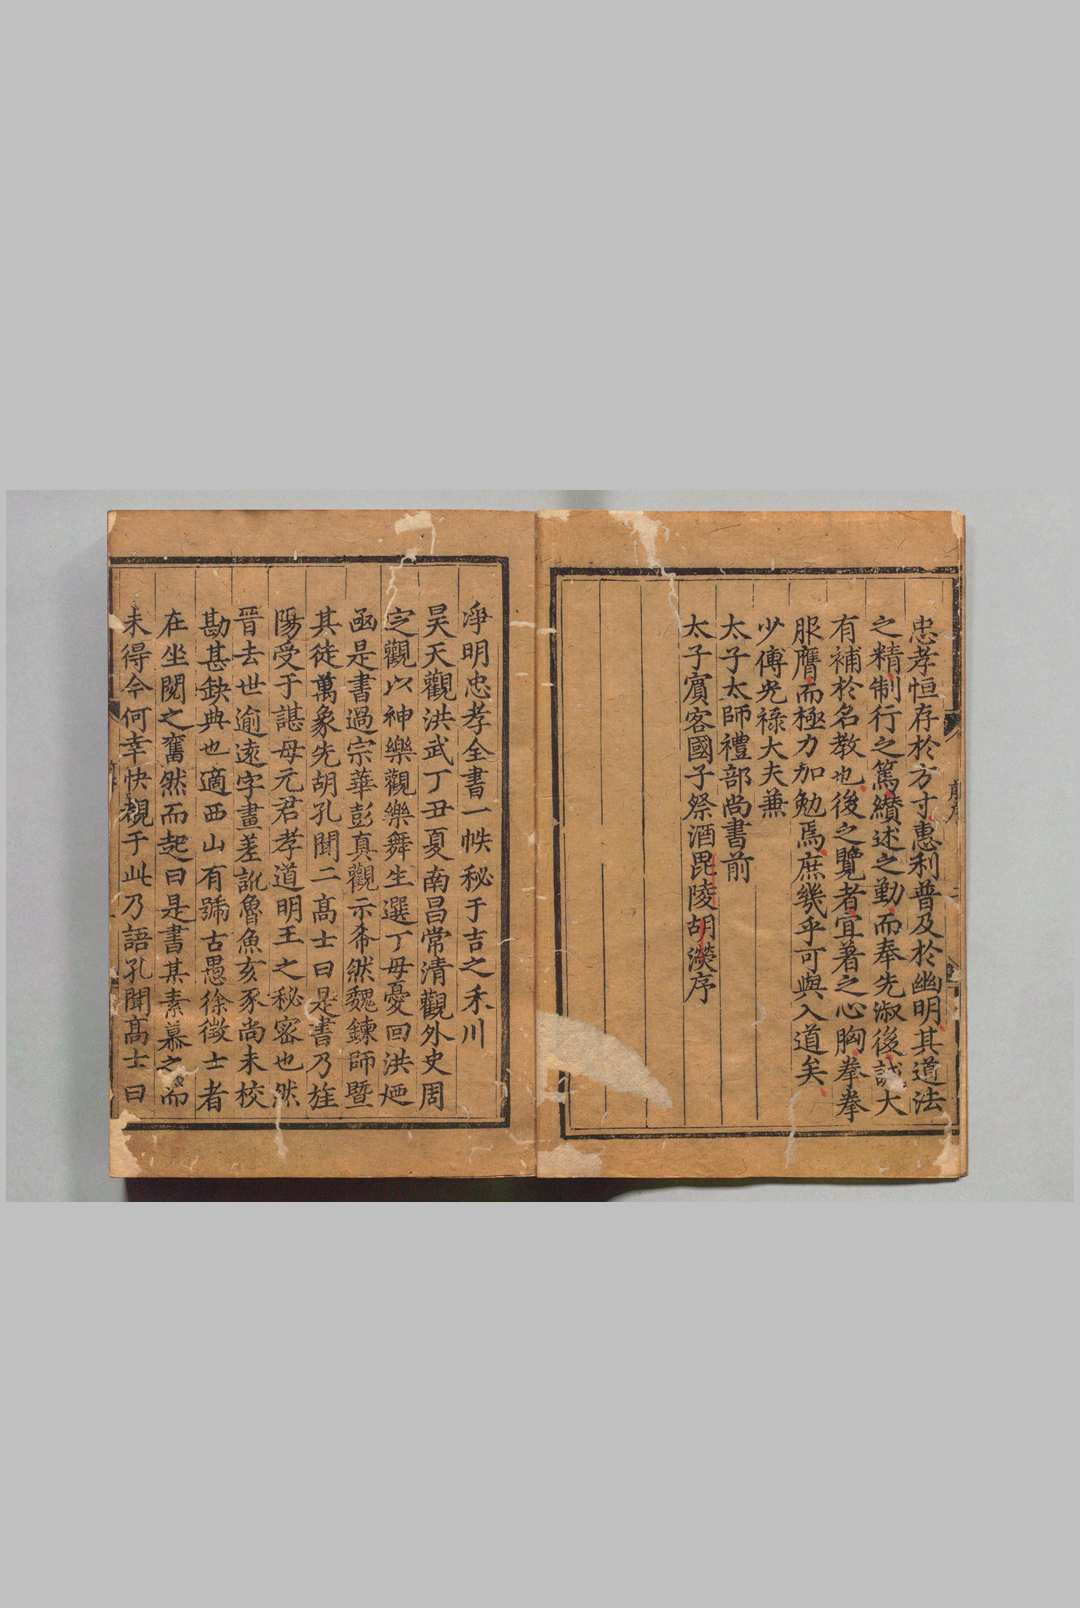 忠孝恒存於方寸惠利普及於幽明其道法
之精制行之篤纉述之勤而奉先淑後誠大
有補於名教也後之覽者宜著之心胸拳拳
服膺而極力加勉焉庶幾乎可與入道矣
少傅光祿大夫兼
太子太師禮部尚書前
太子賓客國子祭酒毘陵胡濙序
淨明忠孝全書一帙秘于吉之禾川
昊天觀洪武丁丑夏南昌常清觀外史周
定觀以神樂觀樂舞生選丁母憂回洪𢌞
函是書過宗華彭真觀示希然魏鍊師暨
其徒萬象先胡孔聞二高士曰是書乃旌
陽受于諶母元君孝道明王之秘密也然
晉去世逾遠字畫差訛魯魚亥豕尚未校
勘甚缺典也適西山有號古愚徐徵士者
在坐閱之奮然而起曰是書某素慕之而
未得今何幸快覩于此乃語孔聞高士曰